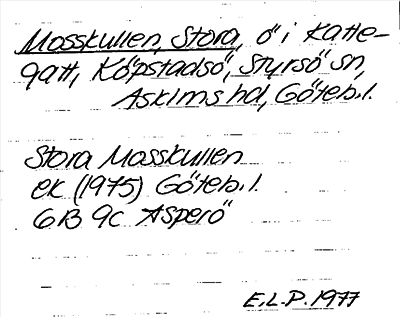 Mosskullen, Stora, ö i Katte-
gatt, Köpstadsö, Styrsö sn,
Askims hd, Göteb. l.
Stora Mosskullen
ek (1975) Göteb. l.
6B 9c Asperö
E.L.P. 1977